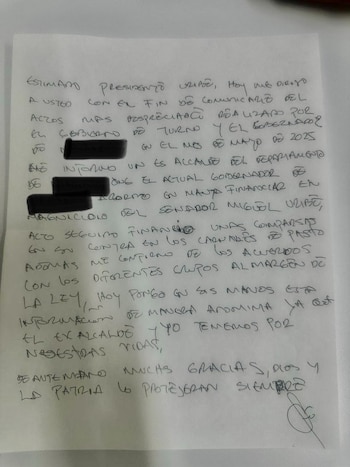 ESTIMADO PRESIDENTE URIBE, HOY ME DIRIJO
A USTED CON EL FIN DE COMUNICARLE DEL
ACTOS MAS DESPRECIABLE REALIZADO POR
EL GOBIERNO DE TURNO Y EL GOBERNADOR
DE EN EL MES DE MAYO DE 2025
ME INFORMO UN EX ALCALDE DEL DEPARTAMENTO
DE QUE EL ACTUAL GOBERNADOR DE
ACORDARON EN MAYO FINANCIAR EN
MAGNICIDIO DEL SENADOR MIGUEL URIBE,
ACTO SEGUIDO FINANCIO UNAS COMPARSAS
EN SU CONTRA EN LOS CARNAVALES DE PASTO
ADEMAS ME CONFIRMO DE LOS ACUERDOS
CON LOS DIFERENTES GRUPOS AL MARGEN DE
LA LEY, HOY PONGO EN SUS MANOS ESTA
INFORMACION DE MANERA ANONIMA YA QUE
EL EX ALCALDE Y YO TEMEMOS POR
NUESTRAS VIDAS,
DE ANTEMANO MUCHAS GRACIAS, DIOS Y
LA PATRIA LO PROTEJERAN SIEMPRE